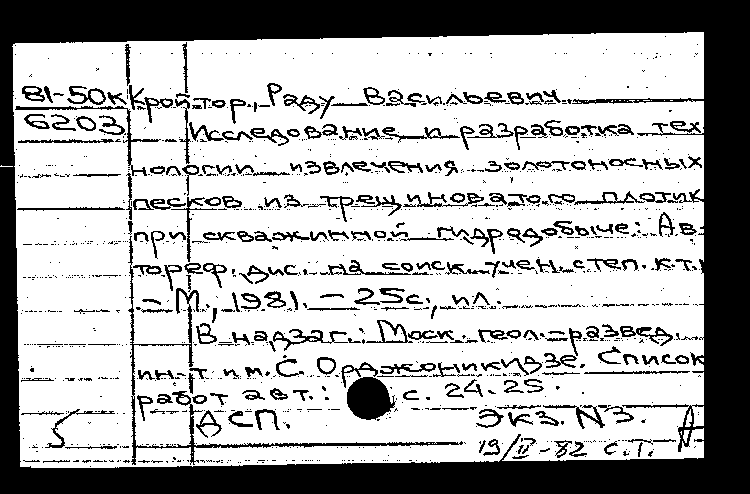 81-50к Кройтор, Раду Васильевич
6203 Исследование и разработка тех
нологии извлечения золотоносных
песков из трещиноватого плотик
при скважинной гидродобыче: Ав-
тореф. дис. на соиск. учен. степ. к.т.
- М., 1981. - 25с., ил.
В надзаг.: Моск. геол.-развед.
ин-т им. С. Орджоникидзе. Список
работ авт.: с. 24.25.
5 ДСП. Экз. N3. А
19/II-82 с.т.